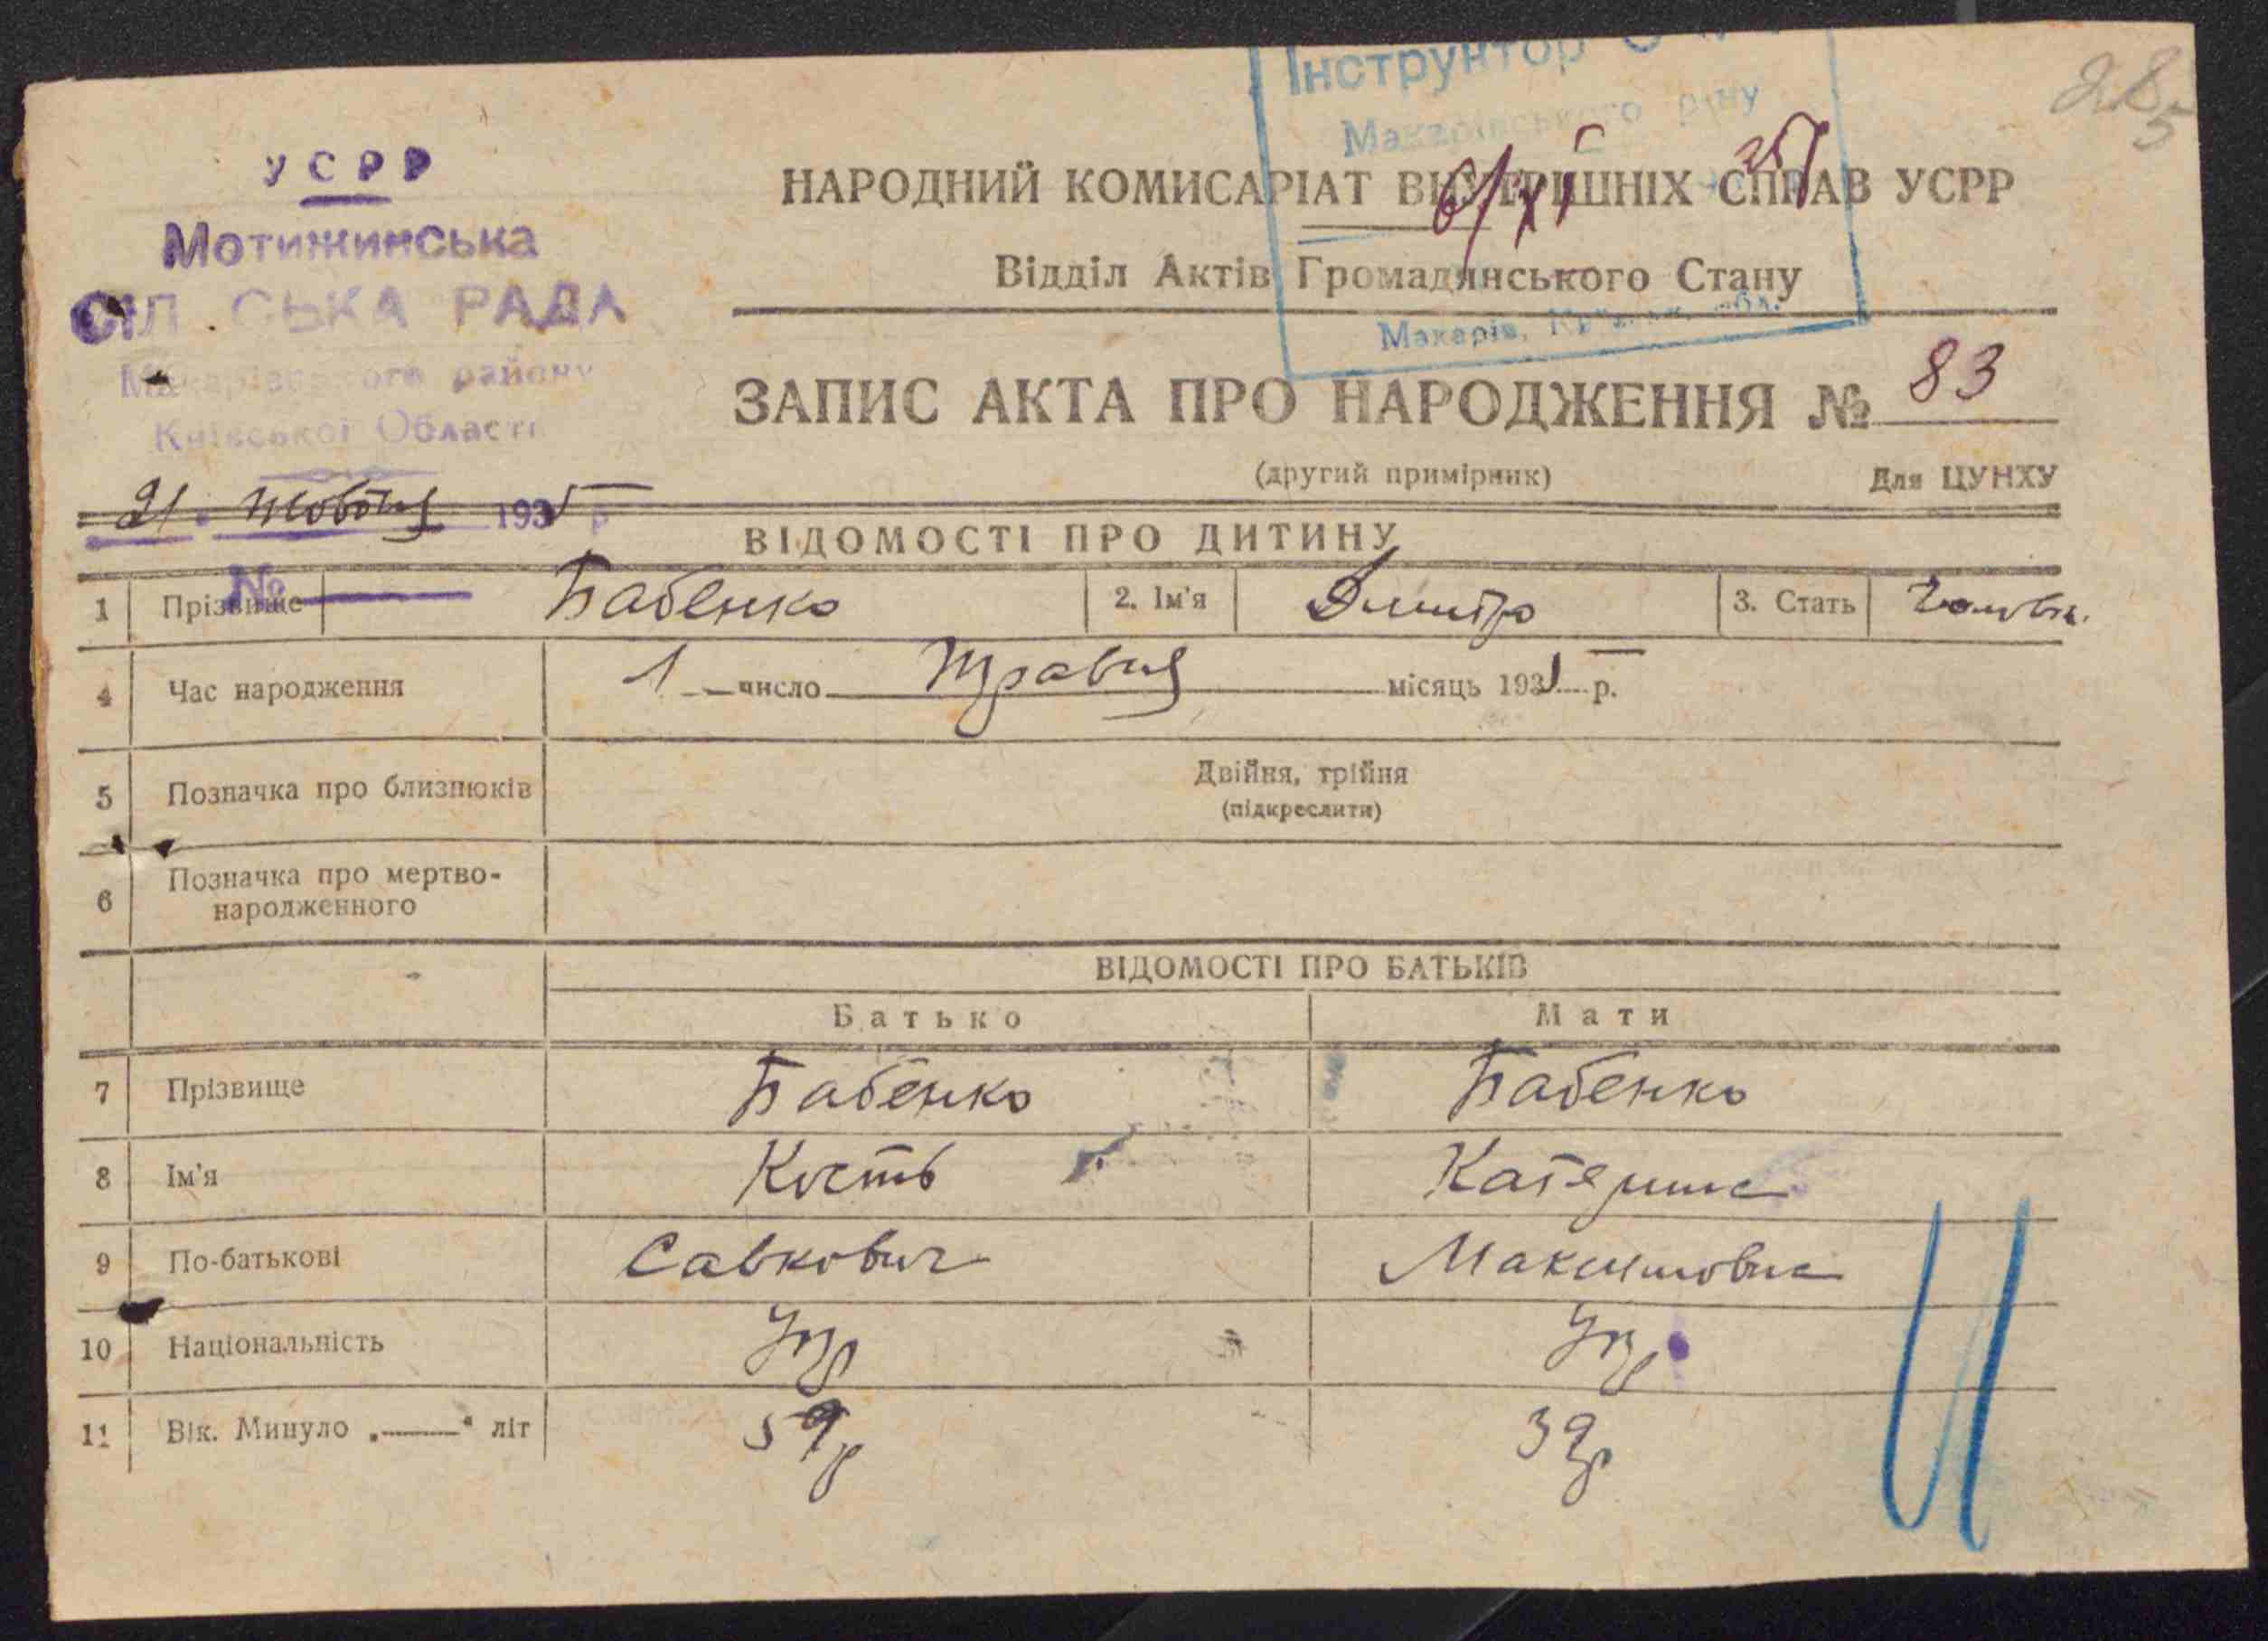 28
5
Інструктор
Макарівського р-ну
УСРР
Мотижинська
СІЛ СЬКА РАДА
Макарівського району
Київської Області
21 жовтня 1935 р
№
НАРОДНИЙ КОМИСАРІАТ ВНУТРІШНІХ СПРАВ УСРР
6/XI 35
Відділ Актів Громадянського Стану
Макарів, обл.
ЗАПИС АКТА ПРО НАРОДЖЕННЯ № 83
(другий примірник) Для ЦУНХУ
ВІДОМОСТІ ПРО ДИТИНУ
1 Прізвище Бабенко 2. Ім'я Дмитро 3. Стать Чоловіч.
4 Час народження 1 число Травня місяць 1935 р.
5 Позначка про близнюків Двійня, трійня
(підкреслити)
6 Позначка про мертво-
народженного
ВІДОМОСТІ ПРО БАТЬКІВ
Батько Мати
7 Прізвище Бабенко Бабенко
8 Ім'я Кость Катерина
9 По-батькові Савкович Максимовна
10 Національність Укр Укр
11 Вік. Минуло „——" літ 59р 39р